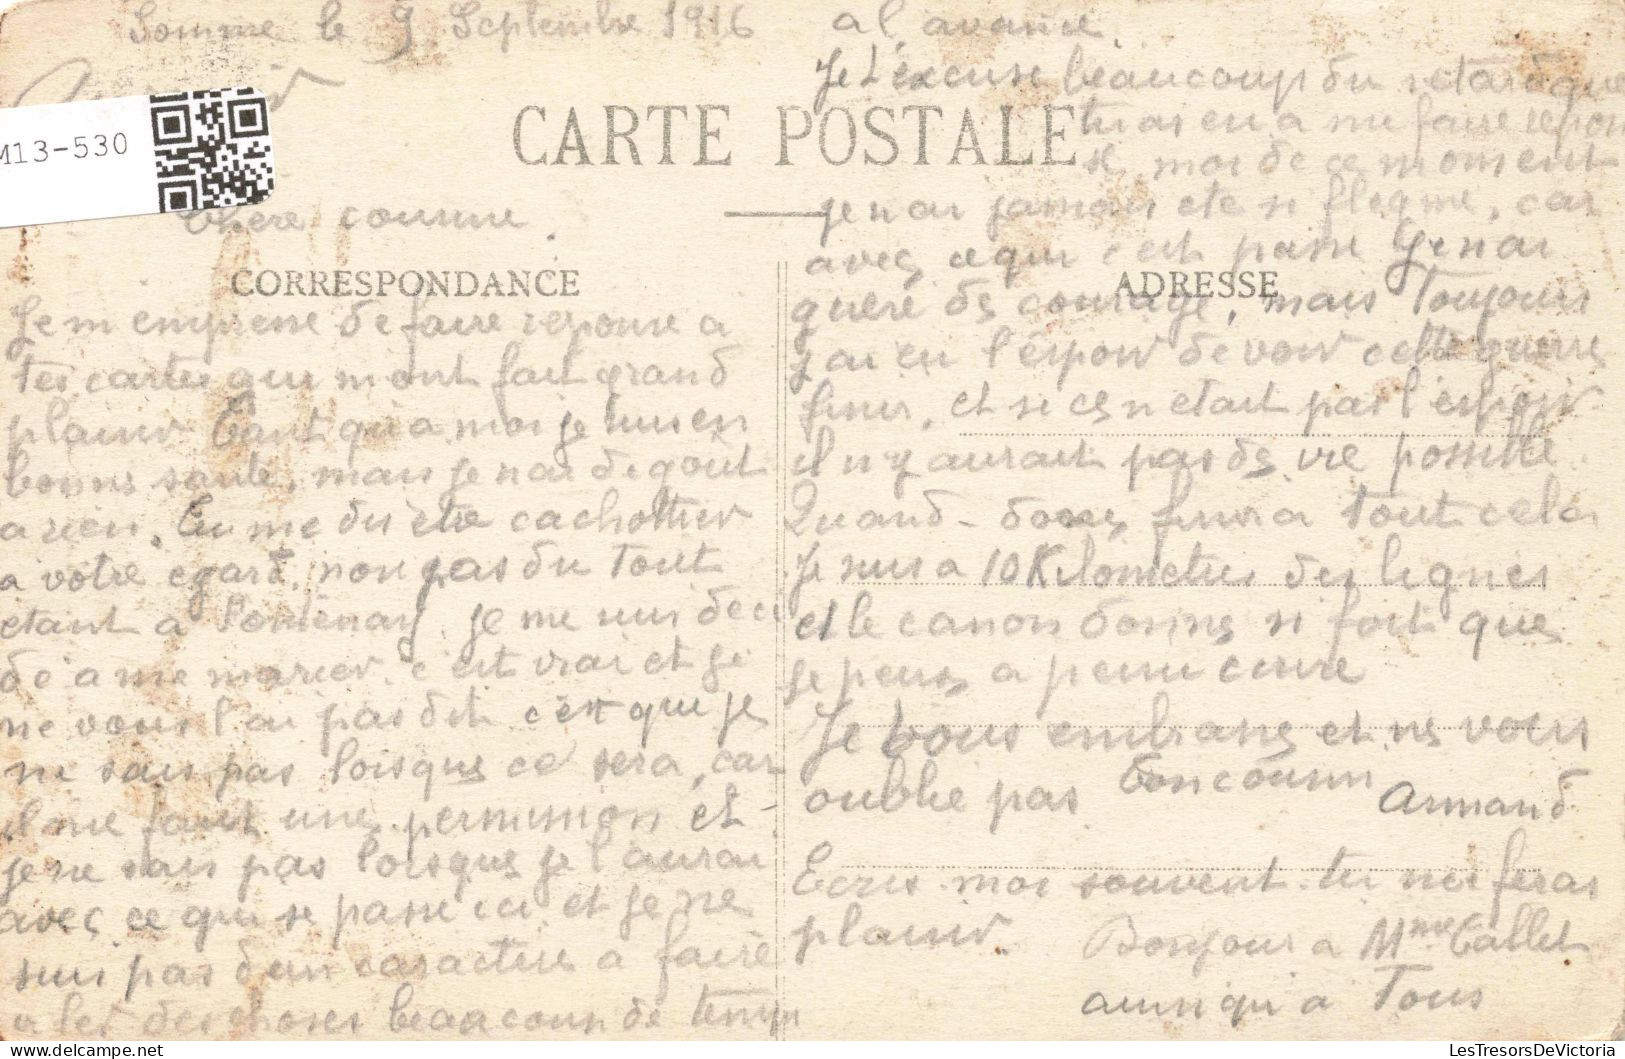 Somme le 9 Septembre 1916
M13-530
CARTE POSTALE
Chere cousine
CORRESPONDANCE
Je m empresse de faire reponse a
tes cartes qui m ont fait grand
plaisir Tant qu a moi je suis en
bonne sante, mais je n ai de goût
a rien. Tu me dis etre cachottier
a votre egard, non pas du tout
etant a Fontenay je me suis deci
dé a me marier. c'est vrai et je
ne vous l ai pas dit c'est que je
ne sais pas lorsque ce sera, car
il me faut une permission et
je ne sais pas lorsque je l aurai
avec ce qui se passe ici et je ne
suis pas d un caractere a faire
des choses beaucoup de temps
a l avance
Je t'excuse beaucoup du retard que
tu as eu a me faire repon
se, moi de ce moment
je n ai jamais ete si flegme, car
avec ce qui c est passe je n ai
ADRESSE
guere de courage, mais toujours
j ai eu l'espoir de voir cette guerre
finir, et si ce n etait pas l espoir
il n y aurait pas de vie possible.
Quand donc finira tout cela
Je suis a 10 Kilometres des lignes
et le canon donne si fort que
je peux a peine ecrire
Je vous embrasse et ne vous
oublie pas Ton cousin
Armand
Ecris moi souvent. tu me feras
plaisir. Bonjour a Mme Callet
ainsi qu a Tous
LesTresorsDeVictoria